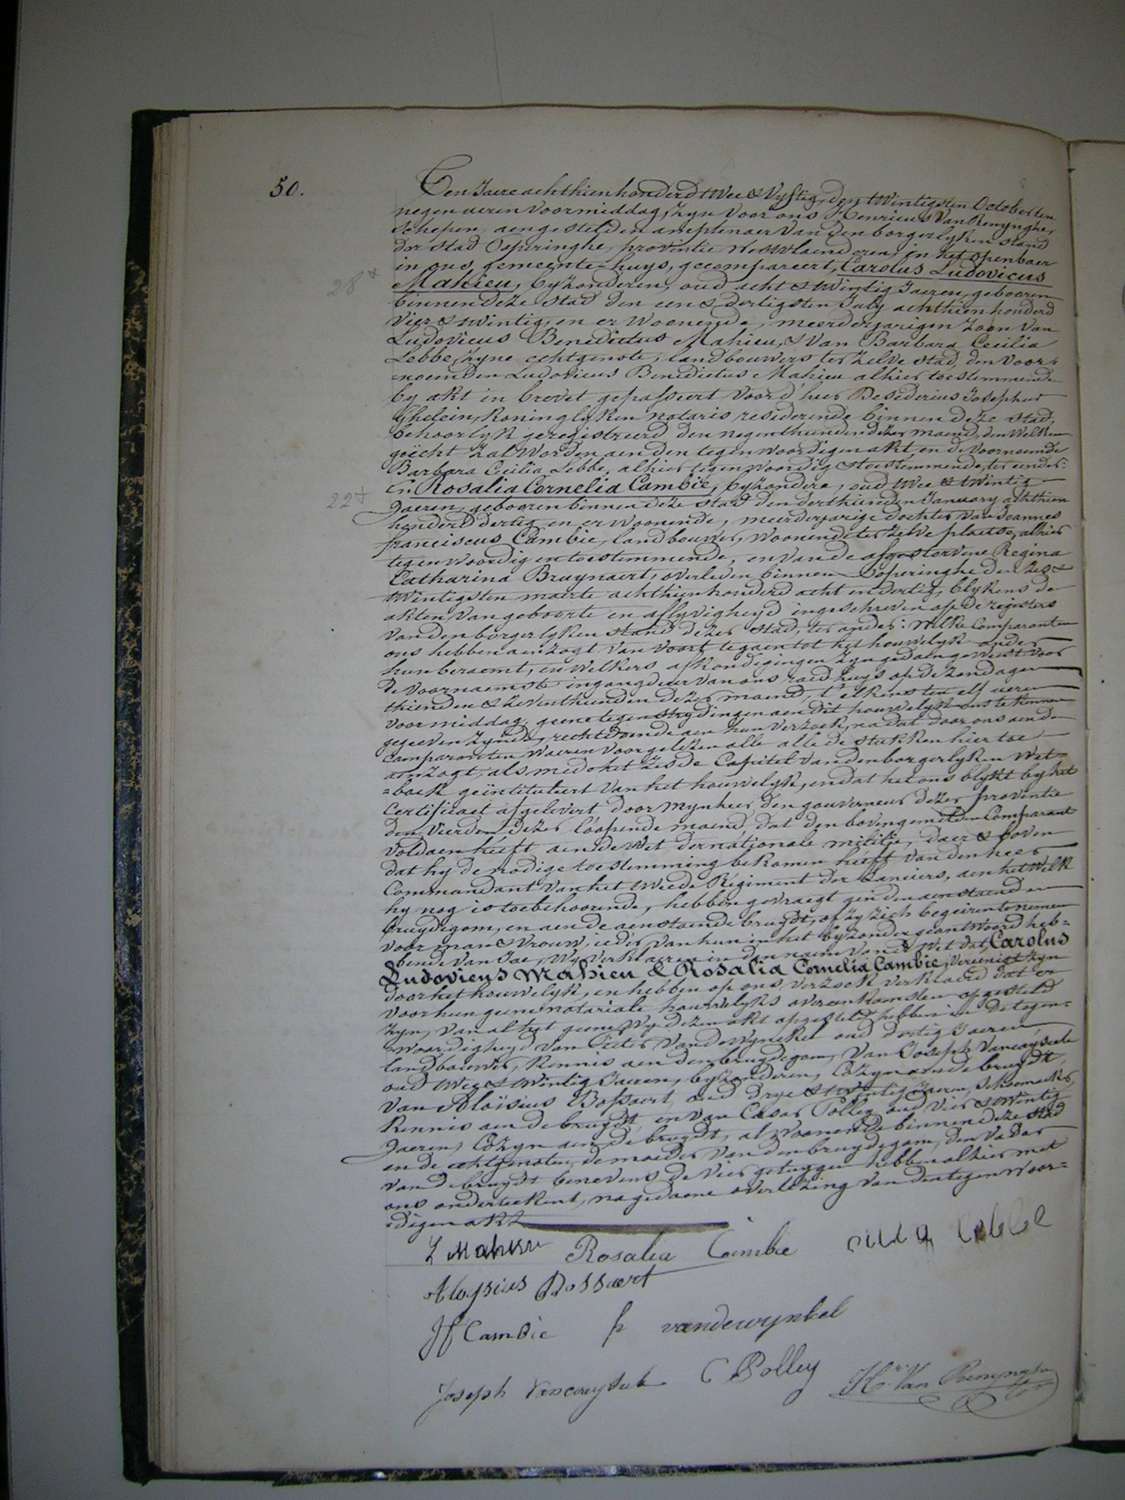 50.
Den Jaere achthienhonderd twee & Vyftig, den twintigsten October ten
negen ueren voormiddag, zyn voor ons Henricus Van Renynghe,
Schepen, aengestelden amptenaer van den borgerlyken stand
der stad Poperinghe, provintie Westvlaenderen, in het openbaer
in ons gemeente-huys, gecompareert, Carolus Ludovicus
28
Mahieu, byzonderen, oud acht & twintig Jaeren, gebooren
binnen deze stad den een & dertigsten July achthienhonderd
Vier & twintig, en er woenende, meerderjarigen zoon van
Ludovicus Benedictus Mahieu, & van Barbara Cecilia
Lebbe, zyne echtgenote, landbouwers ter zelve stad, den voor-
noemden Ludovicus Benedictus Mahieu alhier toestemmende
by akt in brevet gepasseert voor d'heer Desiderius Josephus
Ghelein, Koninglyken notaris residerende binnen deze stad,
behoorlyk geregistreerd den negenthienden dezer maend, den welken
gehecht zal worden aen den tegenwoordigen akt, en de voornoemde
Barbara Cecilia Lebbe, alhier tegenwoordig & toestemmende, ter eender:
22
En Rosalia Cornelia Cambie, byzondere, oud twee & twintig
Jaeren, gebooren binnen deze stad den derthienden January achthien
honderd dertig en er woonende, meerderjarige dochter van Joannes
franciscus Cambie, landbouwer, woonende ter zelve plaetse, alhier
tegenwoordig en toestemmende, en van de afgestorvene Regina
Catharina Bruynaert, overleden binnen Poperinghe den zes &
twintigsten maerte achthienhonderd acht en dertig, blykens de
akten van geboorte en aflyvigheyd ingeschreven op de registers
van den borgerlyken stand dezer stad, ter ander: Welke Comparanten
ons hebben aenzogt van voort te gaen tot het houwelyk onder
hun beraemt, en welkers afkondigingen zyn gedaen geweest voor
de voornaemste ingangdeur van ons raedhuys op de zondagen
thienden & zeventhienden dezer maend, t'elkens ten elf ueren
voormiddag, geene tegenstrydingen aen dit houwelyk ons te kennen
gegeeven zynde, rechtdoende aen hun verzoek, na dat door ons aen de
comparanten waeren voorgelezen alle de stukken hier toe
aenzogt, als mede het zesde Capitel van den borgerlyken Wet-
boek geïntituleert van het houwelyk, en dat het ons blykt by het
Certificaet afgelevert door Mynheer den gouverneur dezer provintie
den vierden dezer loopende maend dat den bovengemelden Comparant
voldaen heeft aen de wet der nationale militie, daer & boven
dat hy de nodige toestemming bekomen heeft van den heer
Commandant van het tweede Régiment der lanciers, aen het welk
hy nog is toebehoorende, hebben gevraegt aen den aenstaenden
bruydigom, en aen de aenstaende bruydt, of zy zich begeiren te nemen
voor man & vrouw, ieder van hun in het byzonder geantwoord heb-
bende van Jae, Wy verklaeren in den naem van de Wet dat Carolus
Ludovicus Mahieu & Rosalia Cornelia Cambie, vereenigt zyn
door het houwelyk, en hebben op ons verzoek verklaerd dat er
voor hun geene notariale houwelyks overeenkomsten opgesteld
zyn, van al het geene wy dezen akt opgesteld hebben in de tegen-
woordigheyd van Pieter Vandewynckel oud dertig Jaeren
landbouwer, Kennis aen den bruydegom, Van Joseph Vancayseele
oud twee & twintig Jaeren, byzonderen, Cozyn aen de bruydt,
van Aloïsius Bossaert, oud drye & twintig Jaeren, Schoemaker,
Kennis aen de bruydt, en van Cesar Polley oud vier & twintig
Jaeren, Cozyn aen de bruydt, al woonende binnen deze stad
en de echtgenoten, de moeder van den bruydegom, den Vader
van de bruydt benevens de vier getuygen hebben alhier met
ons onderteekent, na gedaene overlezing van den tegenwoor-
digen akt.
L Mahieu Rosalia Cambie Lebbe
Aloysius Bossaert
J f Cambie p vandewynkel
Joseph C Polley Hri. Van Renynghe